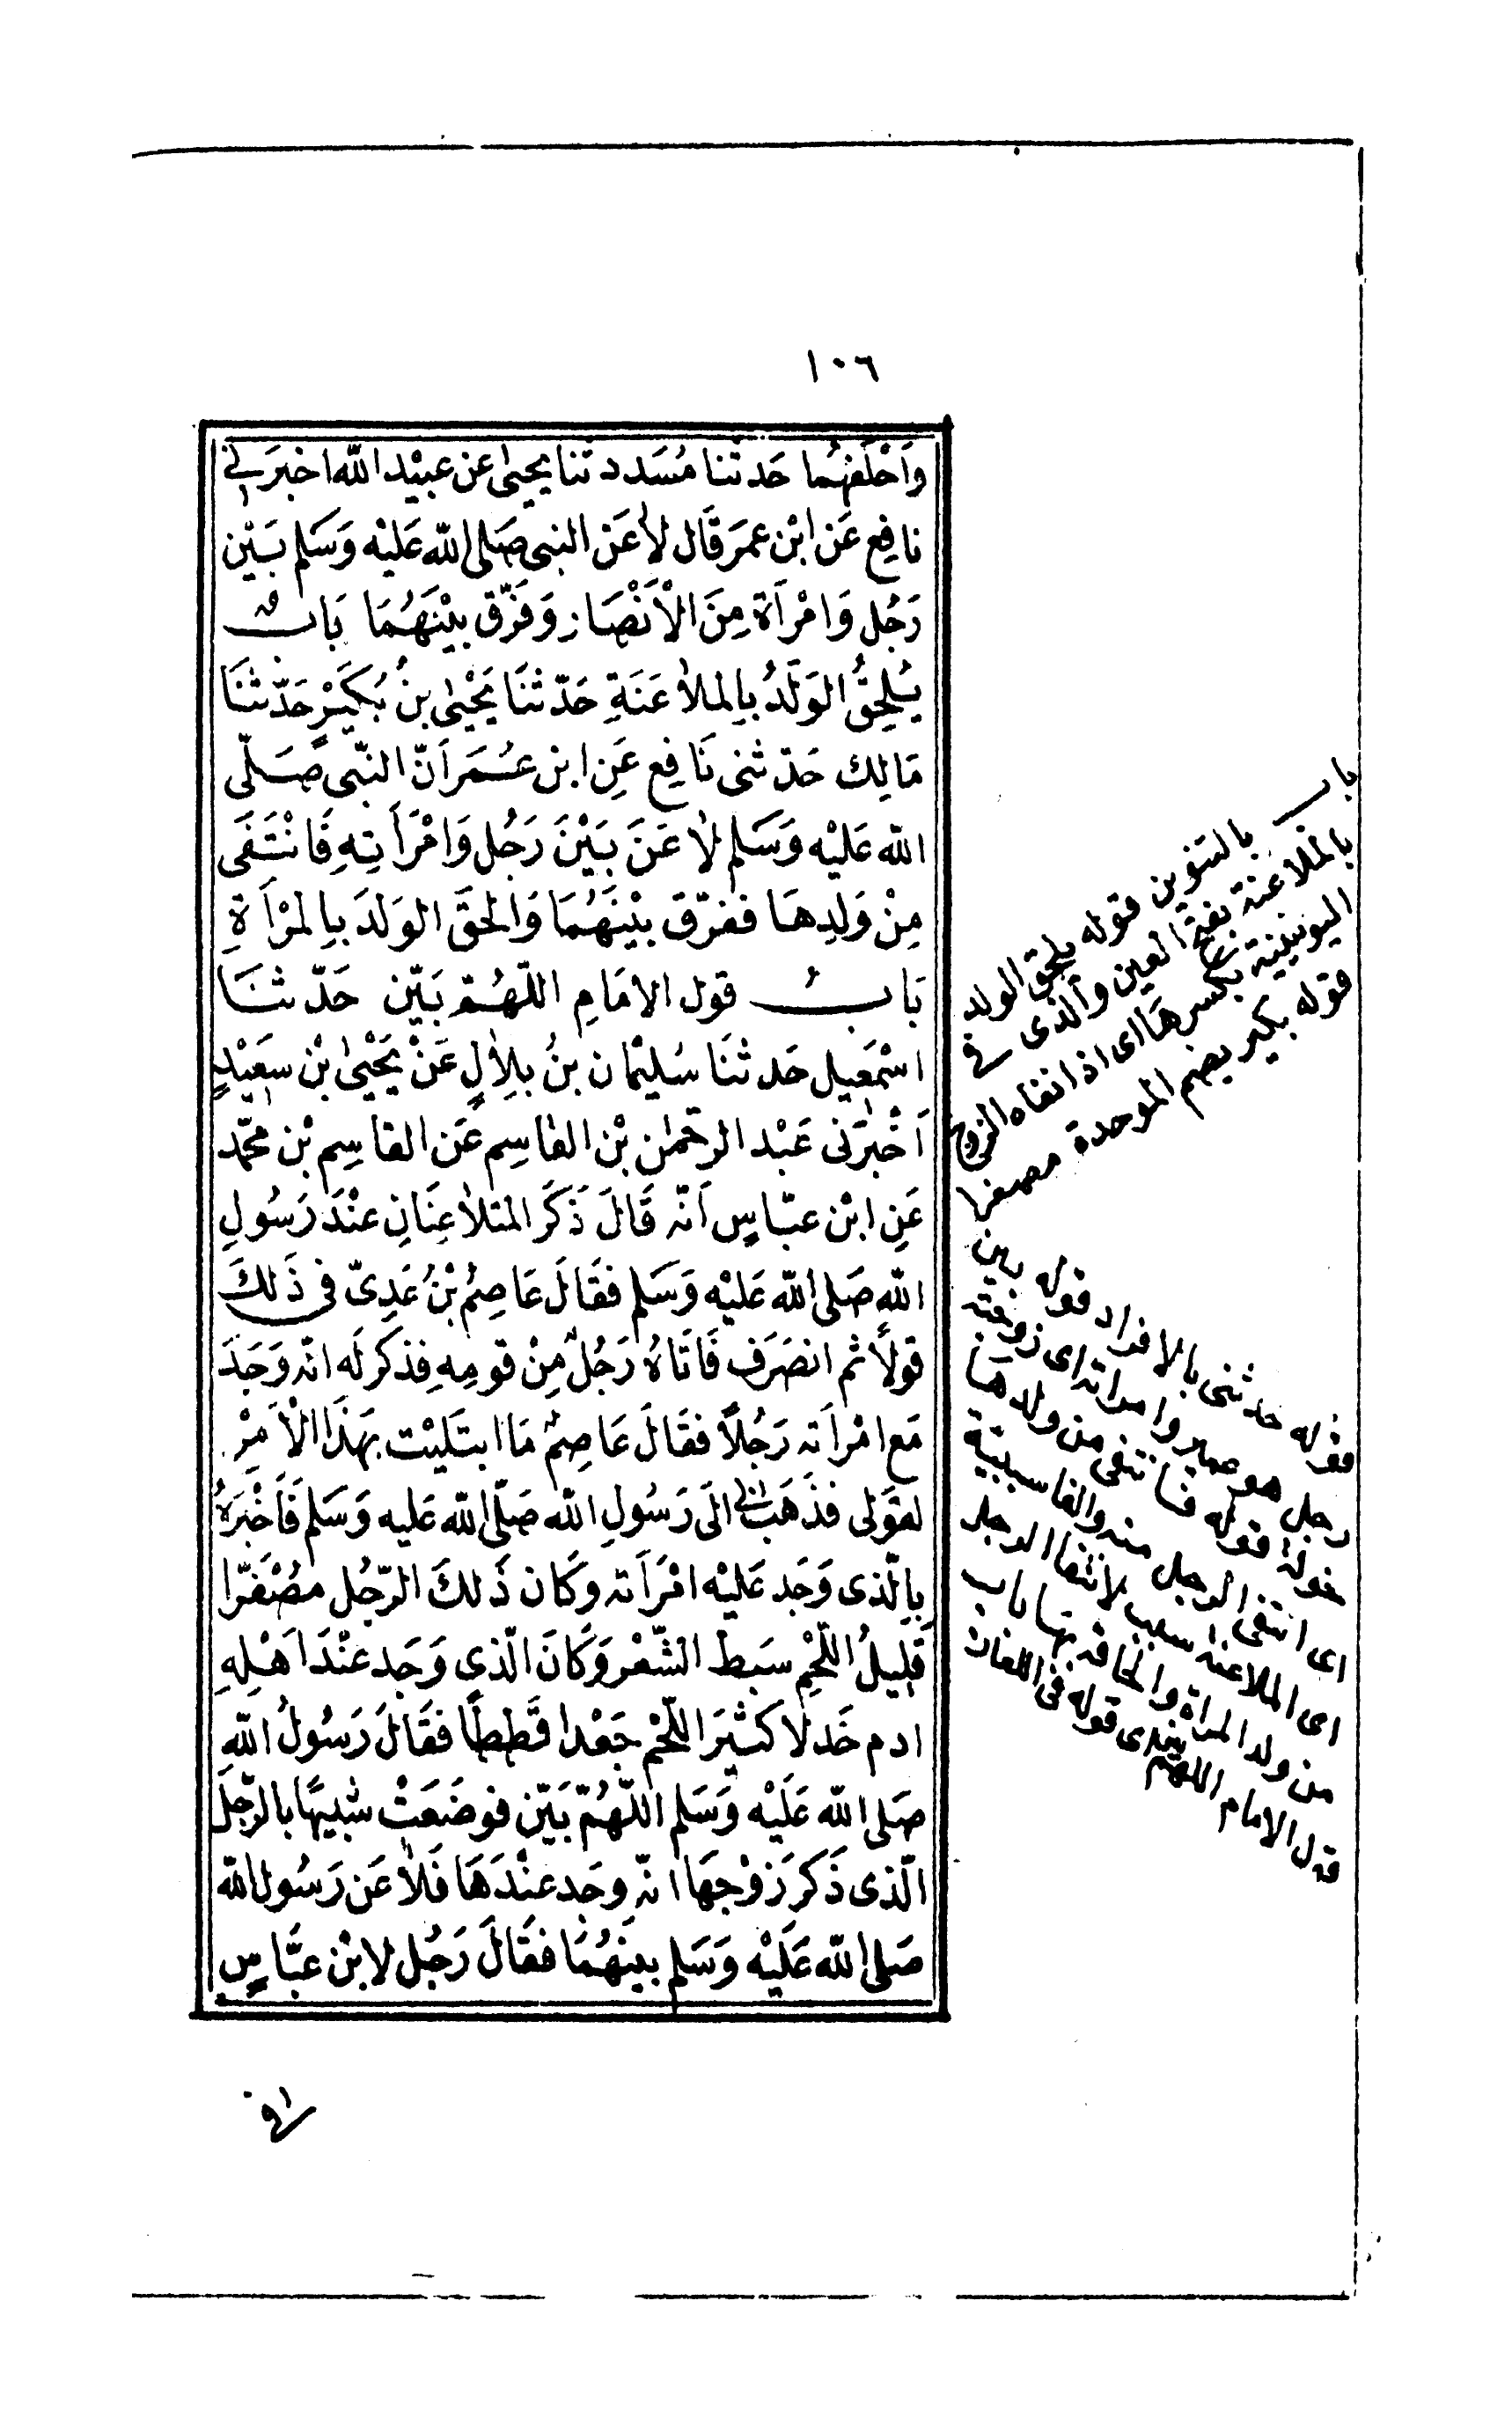 ١٠٦
وَاَحْلَفَهُما حَدثنا مُسَدد ثنا يحيىٰ عن عبيْد الله اخبرَنى
نافِع عَن ابْن عمَر قَال لاٰعَن النبى صَلى الله عَليْه وَسَلم بَيْن
رَجُل وَامْرَأة مِنَ الْاَنْصَار وَفَرّق بيْنَهُمَا بَاب
يُلحِقُ الوَلَدُ بِالملاٰعَنَةِ حَدّثنَا يَحْيىٰ بنُ بُكَيْرٍ حَدّثنَا
مَالِك حَدّثنى نَافِع عَنِ ابن عُمَر اَنّ النّبى صَلّى
الله عَليْه وَسَلم لاٰعَنَ بَيْنَ رَجُل وَامْرَأتِهِ فَانْتَفَى
مِنْ وَلَدِهَا ففرّق بيْنَهُمَا وَالحقَ الوَلدَ بِالمرْاَةِ
بَابُ قول الامَامِ اللّهُمّ بَيّن حَدّثنَا
اسْمٰعِيل حَدثنَا سُليْمان بنُ بِلاٰلٍ عَنْ يَحْيىٰ بْن سعَيْدٍ
اَخْبَرَنى عَبْد الرحْمٰن بْن القاسِم عَن القاسِم بْن محمّد
عَنِ ابْن عبّاسٍ اَنّه قَالَ ذُكَرَ المتلاٰعِنَانِ عنْدَ رَسُولِ
اللهِ صَلى الله عَليْه وَسَلم فقَالَ عَاصِمُ بْنُ عَدِىّ فى ذَلكَ
قولاً ثم انصَرَف فَاتَاهُ رَجُل مِنْ قومِهِ فذكر لَه انّه وَجَدَ
مَع امْرَأته رَجُلاً فقَالَ عَاصِمُ مَا ابتَليْت بهَذَا الْاَمْرِ
لقوَلى فذَهَبَ به الَى رَسُولِ الله صَلّى الله عَليه وَسَلم فَاَخْبَرَهُ
بِالّذى وَجَد عَليْه امْرَأته وَكَان ذَلكَ الرّجُل مصْفَرّا
قليلُ اللّحْمِ سَبط الشّعْر وَكَانَ الّذى وَجَد عنْدَ اَهْلِهِ
ادم خَدلا كثيَر اللّحْم جَعْدا قَططاً فقَالَ رَسُولُ اللهِ
صَلى الله عَلَيْه وَسَلم اللّهُمّ بَيّن فوضَعَتْ شبيهًا بالرّجل
الّذى ذَكَر زَوْجهَا انّه وجَد عنْدَهَا فَلاٰعَن رَسُول الله
صَلى الله عَلَيْه وَسَلم بينَهُمَا فقَالَ رَجُل لابْن عَبَّاسٍ
باب بالتنوين قوله يلحق الولد
بالملاعنة بفتح العين والذى فى
اليونينية بكسرهَا اى اذا نفاه الزوج
قوله بكير بضم الموحدة مصغرا
قوله حدثنى بالافراد قوله بين
رجل هو عويمر وامراته اى زوجته
خولة قوله فانتفى من ولدها
اى انتفى الرجل منه والفا سببية
اى الملاعنة سبب لانتفا الرجل
من ولد المرأة والحاقه بها باب
قول الامام اللهم بين قوله
فى